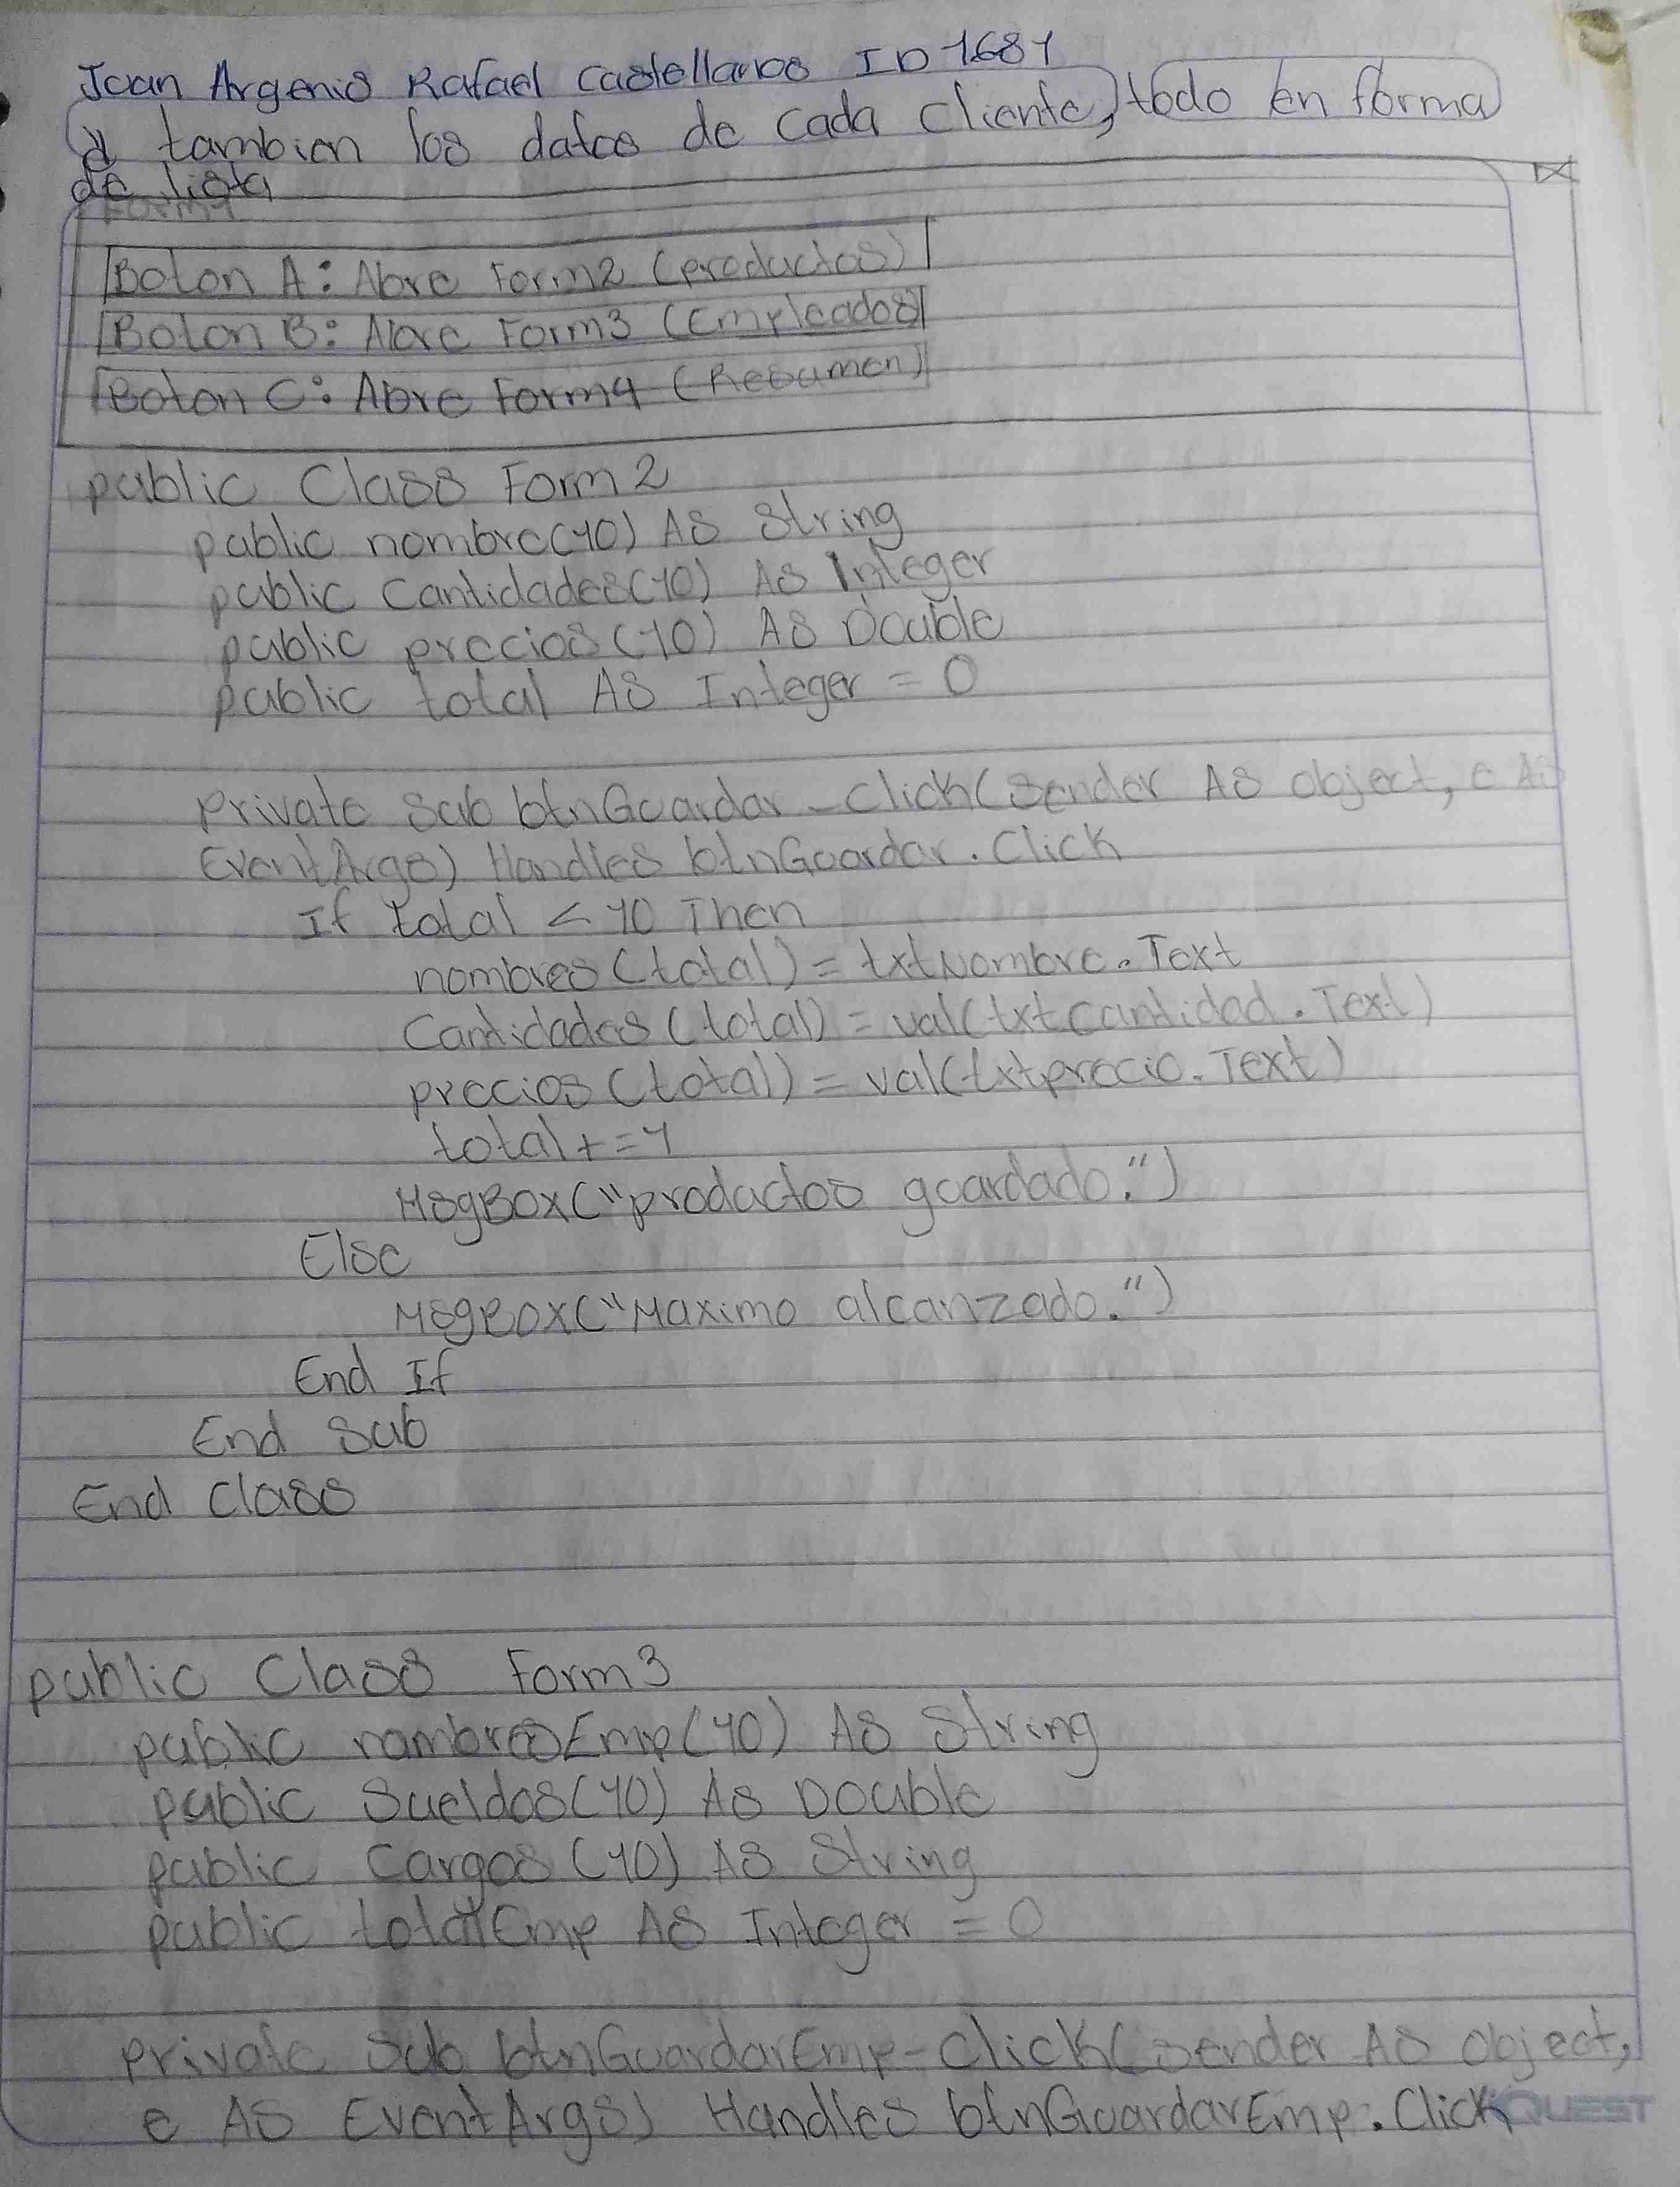 Juan Argenis Rafael Castellanos ID 1681
y tambien los datos de cada cliente, todo en forma
de lista
Form1
Boton A: Abre Form2 (productos)
Boton B: Abre Form3 (Empleados)
Boton C: Abre Form4 (Resumen)
public Class Form2
public nombre(10) AS String
public Cantidades(10) AS Integer
public precios(10) AS Double
public total AS Integer = 0
Private Sub btnGuardar_Click(Sender AS object, e AS
EventArgs) Handles btnGuardar.Click
If total < 10 Then
nombres(total) = txtNombre.Text
Cantidades(total) = val(txtCantidad.Text)
precios(total) = val(txtprecio.Text)
total += 1
MsgBox("productos guardado.")
Else
MsgBox("Maximo alcanzado.")
End If
End Sub
End Class
public Class Form3
public nombresEmp(10) AS String
public Sueldos(10) As Double
public Cargos(10) AS String
public totalEmp AS Integer = 0
Private Sub btnGuardarEmp-Click(sender AS Object,
e AS EventArgs) Handles btnGuardarEmp.Click
QUEST